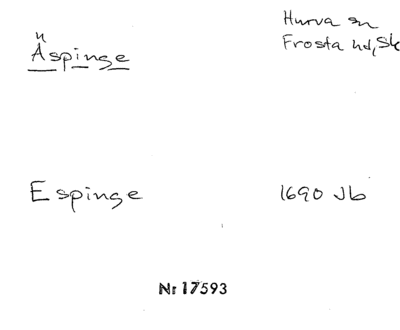 Hurva sn
Äspinge
Frosta hd, Sk
Espinge 1690 Jb
Nr 17593